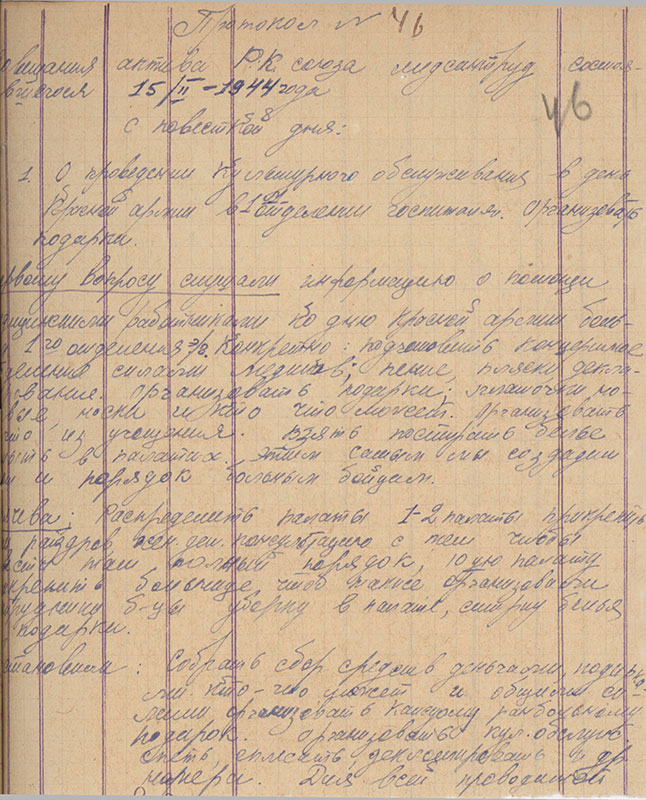 Протокол N 46
вещания актива Р.К. союза медсантруд состоя-
вшегося 15/II - 1944 года
46
с повесткой дня:
1. О проведении культурного обслуживания в день
Красной армии в 1ом отделении госпиталя. Организовать
подарки.
рвому вопросу слушали информацию о помощи
дицинскими работниками ко дню красной армии боль-
1го отделения э/г. Конкретно: подготовить концертное
деление силами медиков; пение, пляски, декла-
мование. Организовать подарки; платочки но-
вые, носки и кто что может. Организовать
что, из угощения. Взять постирать белье
мыть в палатах. Этим самым мы создадим
и порядок больным бойцам.
чева: Распределить палаты 1-2 палаты прикрепить
консультацию с тем чтобы
там полный порядок, 10ую палату
крепить больнице чтоб также организовали
б-цы уборку в палате, стирку белья
подарки.
становили: Собрать сбор средств деньгами, подарка-
ми кто-что может и общими си-
лами организовать каждому ранбольному
подарок. Организовать кул. обслуж.
спеть, сплясать, декламировать и др
номера. Для всей проводимой